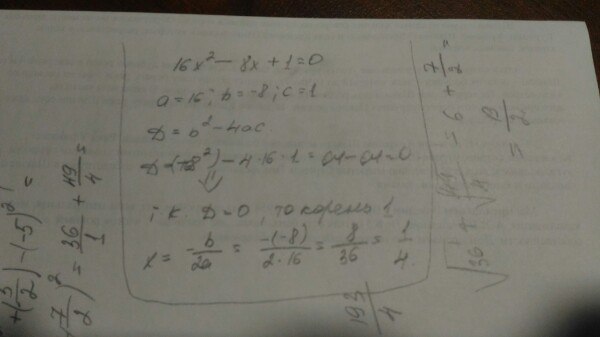 16x² - 8x + 1 = 0
a = 16; b = -8; c = 1.
D = b² - 4ac
D = (-8²) - 4·16·1 = 64 - 64 = 0
т.к. D = 0, то корень 1
x = -b/2a = -(-8)/2·16 = 8/36 = 1/4.
+(3/2) - (-5)² =
(7/2)² = 36/1 + 49/4 =
193/4
√36 + √49/4 = 6 + 7/2 =